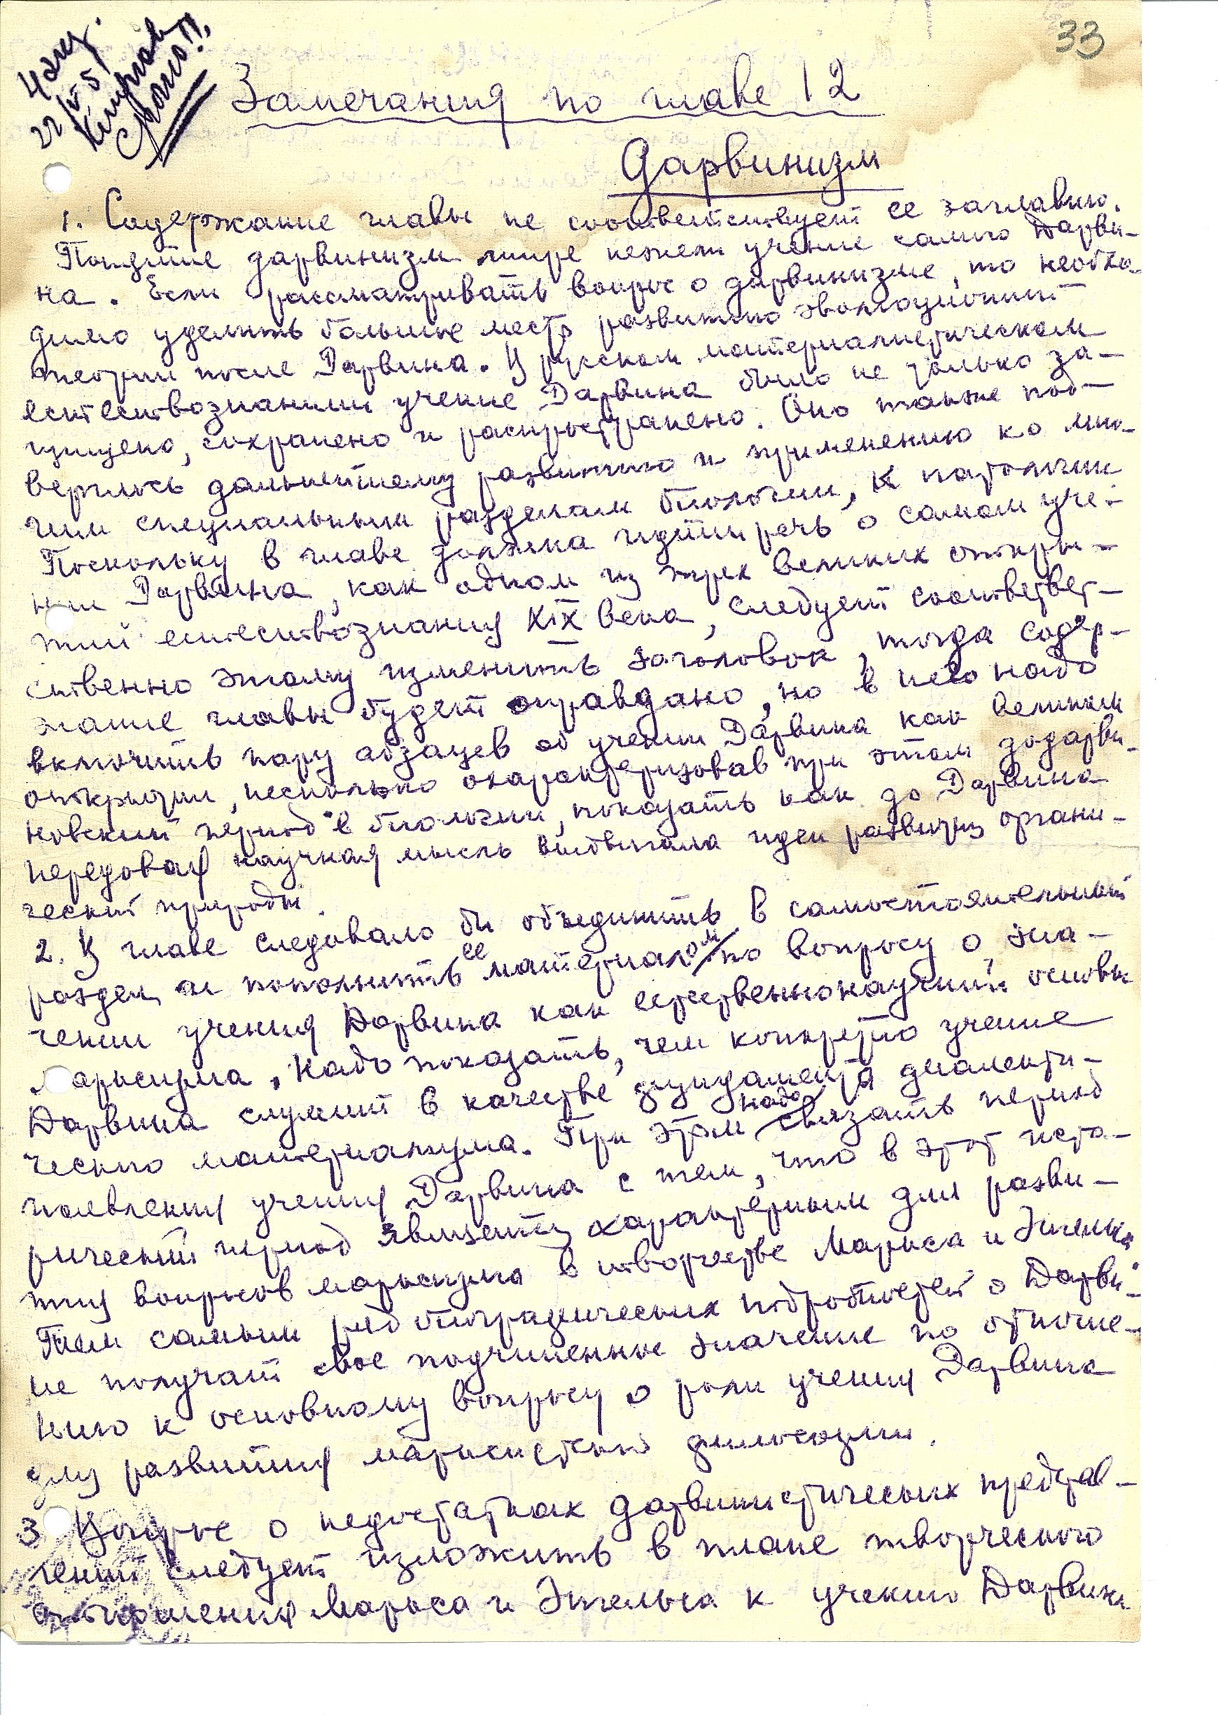 33
4 экз.
Срочно!!
Замечания по главе 12
Дарвинизм
1. Содержание главы не соответствует ее заглавию.
Понятие дарвинизм шире нежели учение самого Дарви-
на. Если рассматривать вопрос о дарвинизме, то необхо-
димо уделить большее место развитию эволюционной
теории после Дарвина. В русском материалистическом
естествознании учение Дарвина было не только за-
щищено, сохранено и распространено. Оно также под-
верглось дальнейшему развитию и применению ко мно-
гим специальным разделам биологии, к патологии
Поскольку в главе должна идти речь о самом уче-
нии Дарвина, как одном из трех великих откры-
тий естествознания XIX века, следует соответвет-
ственно этому изменить заголовок, тогда содер-
жание главы будет оправдано, но в нее надо
включить пару абзацев об учении Дарвина как великом
открытии, несколько охарактеризовав при этом додарви-
новский период в биологии, показать как до Дарвина
передовая научная мысль выдвигала идеи развития органи-
ческой природы.
2. В главе следовало бы объединить в самостоятельный
раздел и пополнить ее материалом по вопросу о зна-
чении учения Дарвина как естественнонаучной основы
марксизма. Надо показать, чем конкретно учение
Дарвина служит в качестве фундамента диалекти-
ческого материализма. При этом надо связать период
появления учения Дарвина с тем, что в этот исто-
рический период является характерным для разви-
тия вопросов марксизма в творчестве Маркса и Энгельса
Тем самым ряд биографических подробностей о Дарви-
не получат свое подчиненное значение по отноше-
нию к основному вопросу о роли учения Дарвина
для развития марксистской философии.
3. Вопрос о недостатках дарвинистических представ-
лений следует изложить в плане творческого
отношения Маркса и Энгельса к учению Дарвина